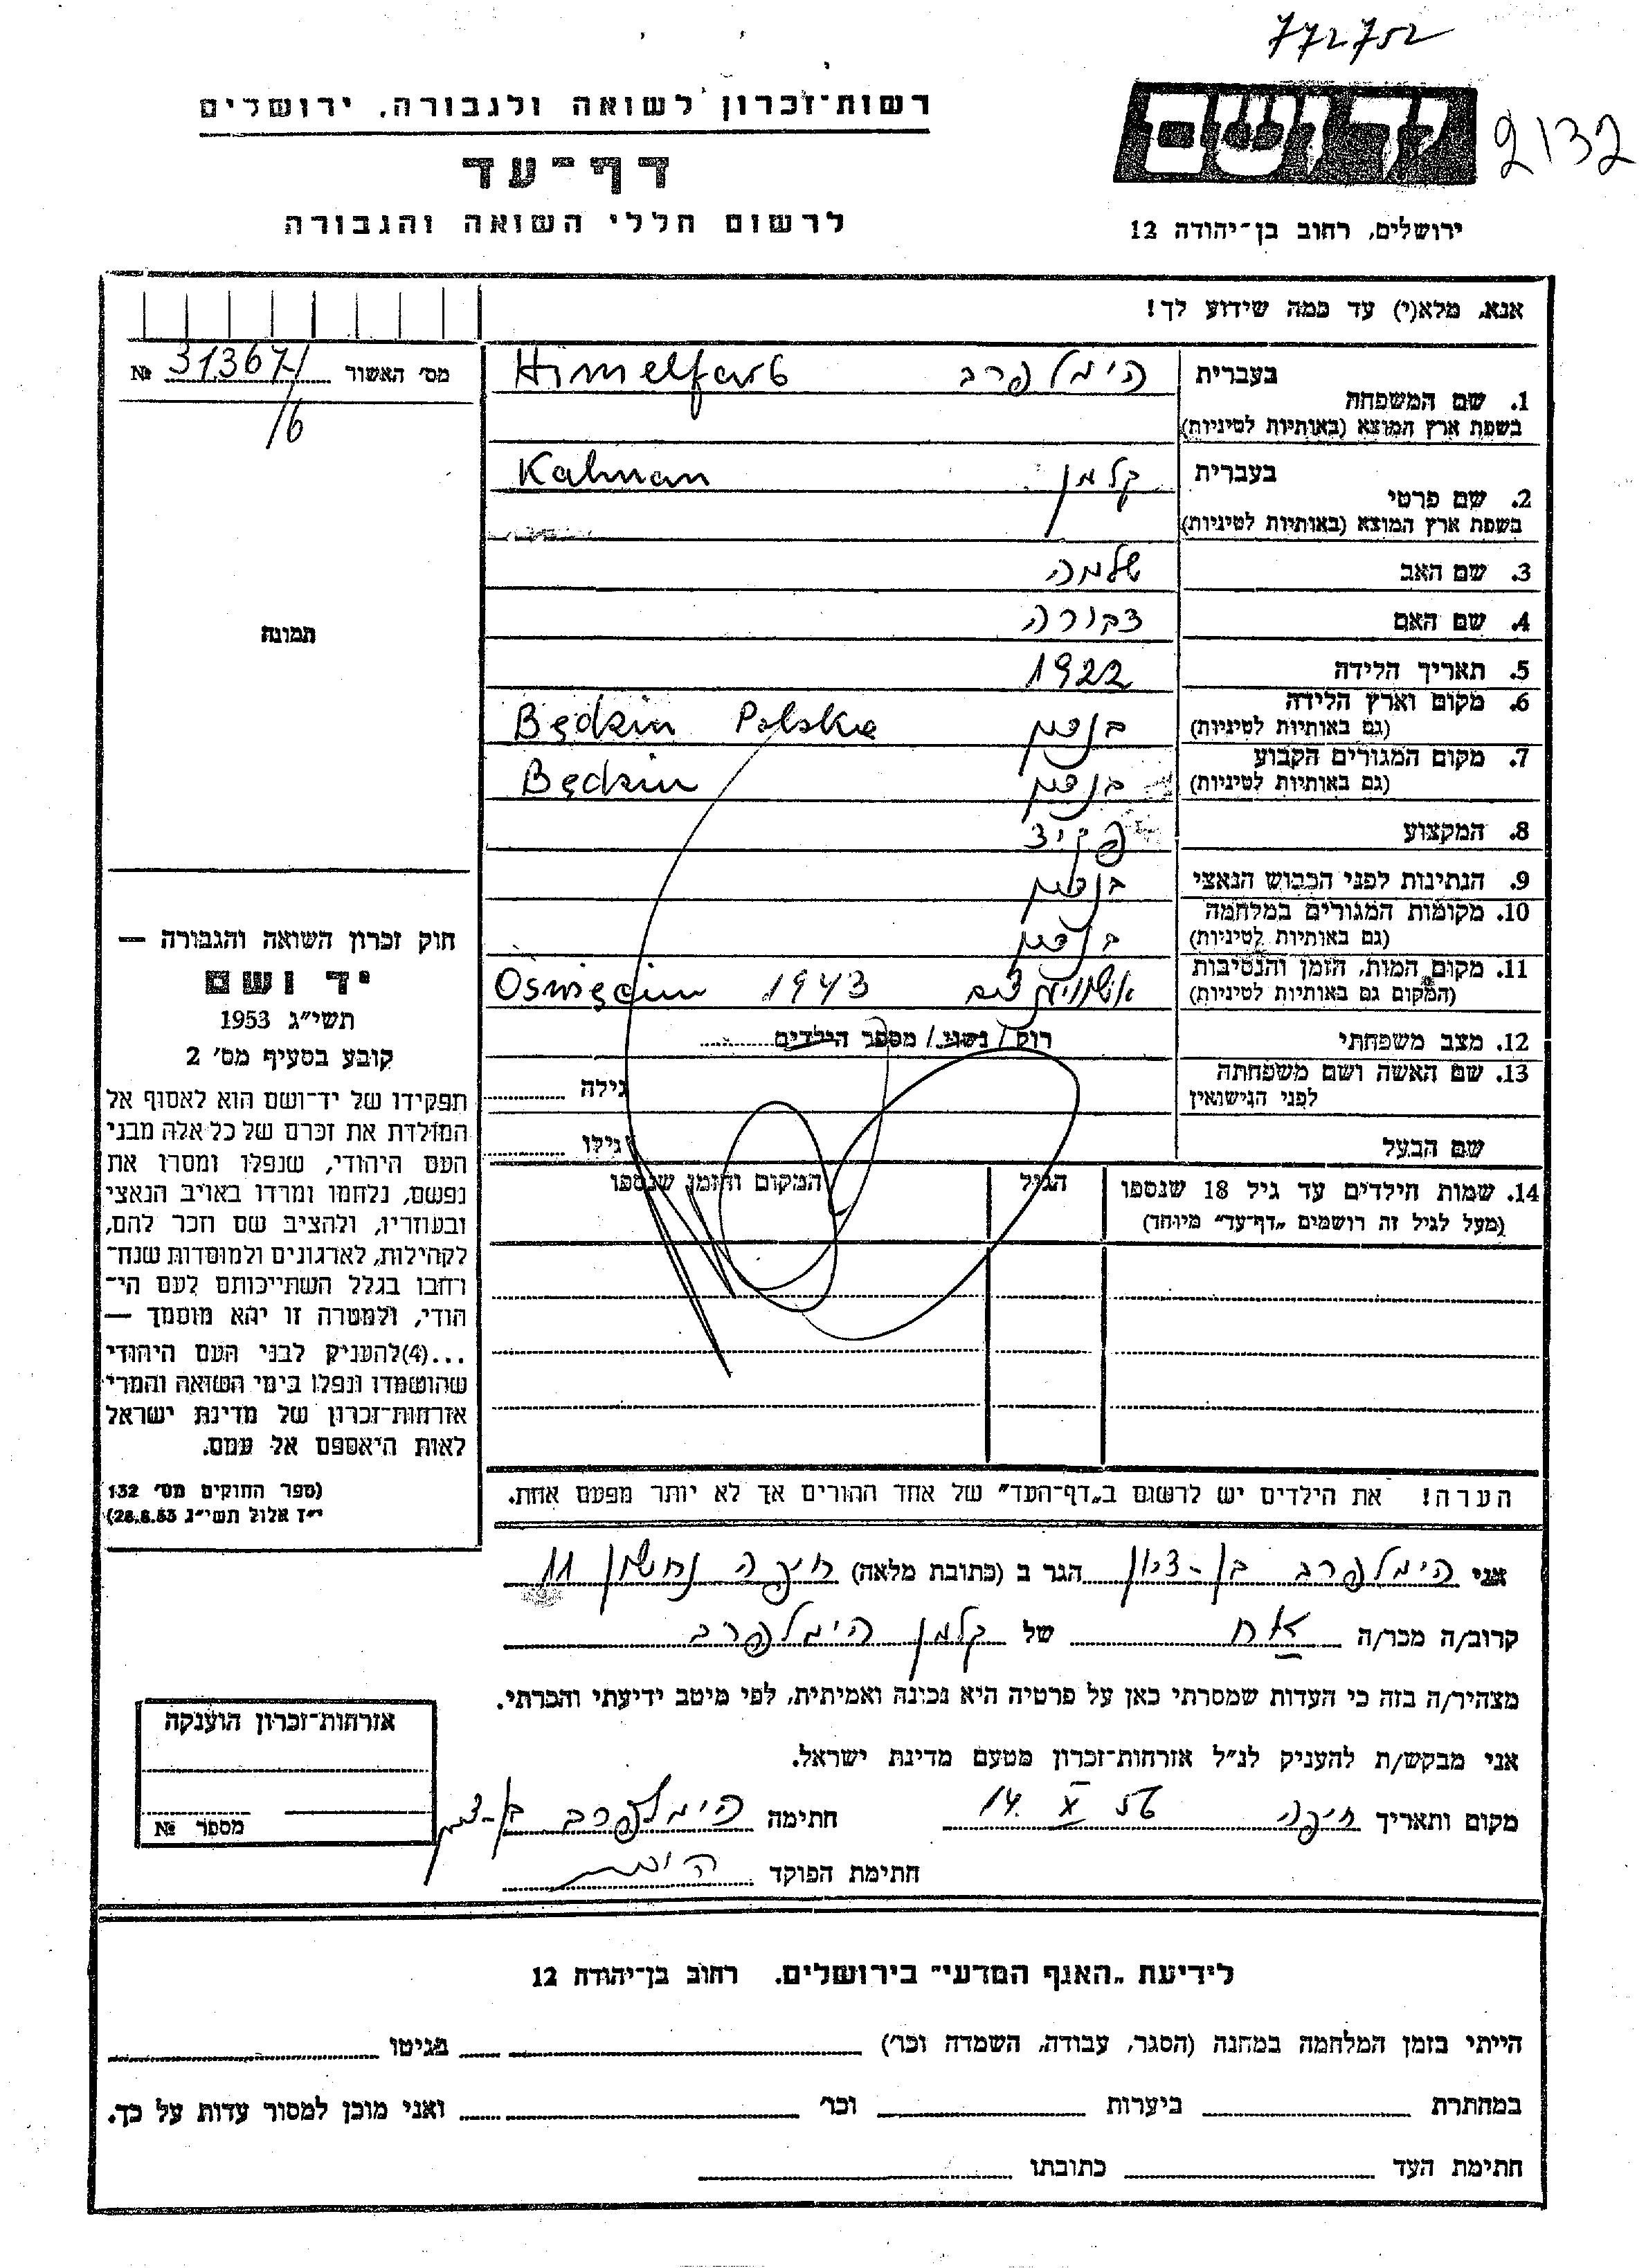 772752
רשות־זכרון לשואה ולגבורה, ירושלים
יד ושם
2132
דף־עד
לרשום חללי השואה והגבורה
ירושלים, רחוב בן־יהודה 12
אנא, מלא(י) עד כמה שידוע לך!
בעברית הימלפרב Himelfarb
1. שם המשפחה
בשפת ארץ המוצא (באותיות לטיניות)
בעברית קלמן Kalman
2. שם פרטי
בשפת ארץ המוצא (באותיות לטיניות)
3. שם האב שלמה
4. שם האם
5. תאריך הלידה 1922
6. מקום וארץ הלידה בנדין Będzin Polska
(גם באותיות לטיניות)
7. מקום המגורים הקבוע בנדין Będzin
(גם באותיות לטיניות)
8. המקצוע פקיד
9. הנתינות לפני הכבוש הנאצי בנדין
10. מקומות המגורים במלחמה בנדין
(גם באותיות לטיניות)
11. מקום המות, הזמן והנסיבות 1943 Oświęcim
(המקום גם באותיות לטיניות)
12. מצב משפחתי רוק / נשוי / מספר הילדים
13. שם האשה ושם משפחתה
לפני הנישואין גילה
שם הבעל גילו
14. שמות הילדים עד גיל 18 שנספו הגיל המקום והזמן שנספו
(מעל לגיל זה רושמים „דף־עד" מיוחד)
הערה! את הילדים יש לרשום ב„דף־העד" של אחד ההורים אך לא יותר מפעם אחת.
מס' האשור № 313671
/6
תמונה
חוק זכרון השואה והגבורה —
יד ושם
תשי"ג 1953
קובע בסעיף מס' 2
תפקידו של יד־ושם הוא לאסוף אל
המולדת את זכרם של כל אלה מבני
העם היהודי, שנפלו ומסרו את
נפשם, נלחמו ומרדו באויב הנאצי
ובעוזריו, ולהציב שם וזכר להם,
לקהילות, לארגונים ולמוסדות שנח־
רבו בגלל השתייכותם לעם הי־
הודי, ולמטרה זו יהא מוסמך —
...(4) להעניק לבני העם היהודי
שהושמדו ונפלו בימי השואה והמרי
אזרחות־זכרון של מדינת ישראל
לאות היאספם אל עמם.
(ספר החוקים מס' 132
י"ז אלול תשי"ג 28.8.53)
אני הימלפרב בן-ציון הגר ב (כתובת מלאה) חיפה נחשון 11
קרוב/ה מכר/ה אח של קלמן הימלפרב
מצהיר/ה בזה כי העדות שמסרתי כאן על פרטיה היא נכונה ואמיתית, לפי מיטב ידיעתי והכרתי.
אני מבקש/ת להעניק לנ"ל אזרחות־זכרון מטעם מדינת ישראל.
מקום ותאריך חיפה 14. X 56 חתימה הימלפרב בן-ציון
חתימת הפוקד
אזרחות־זכרון הוענקה
מספר №
לידיעת „האגף המדעי" בירושלים. רחוב בן־יהודה 12
הייתי בזמן המלחמה במחנה (הסגר, עבודה, השמדה וכו') בגיטו
במחתרת ביערות וכו' ואני מוכן למסור עדות על כך.
חתימת העד כתובתו